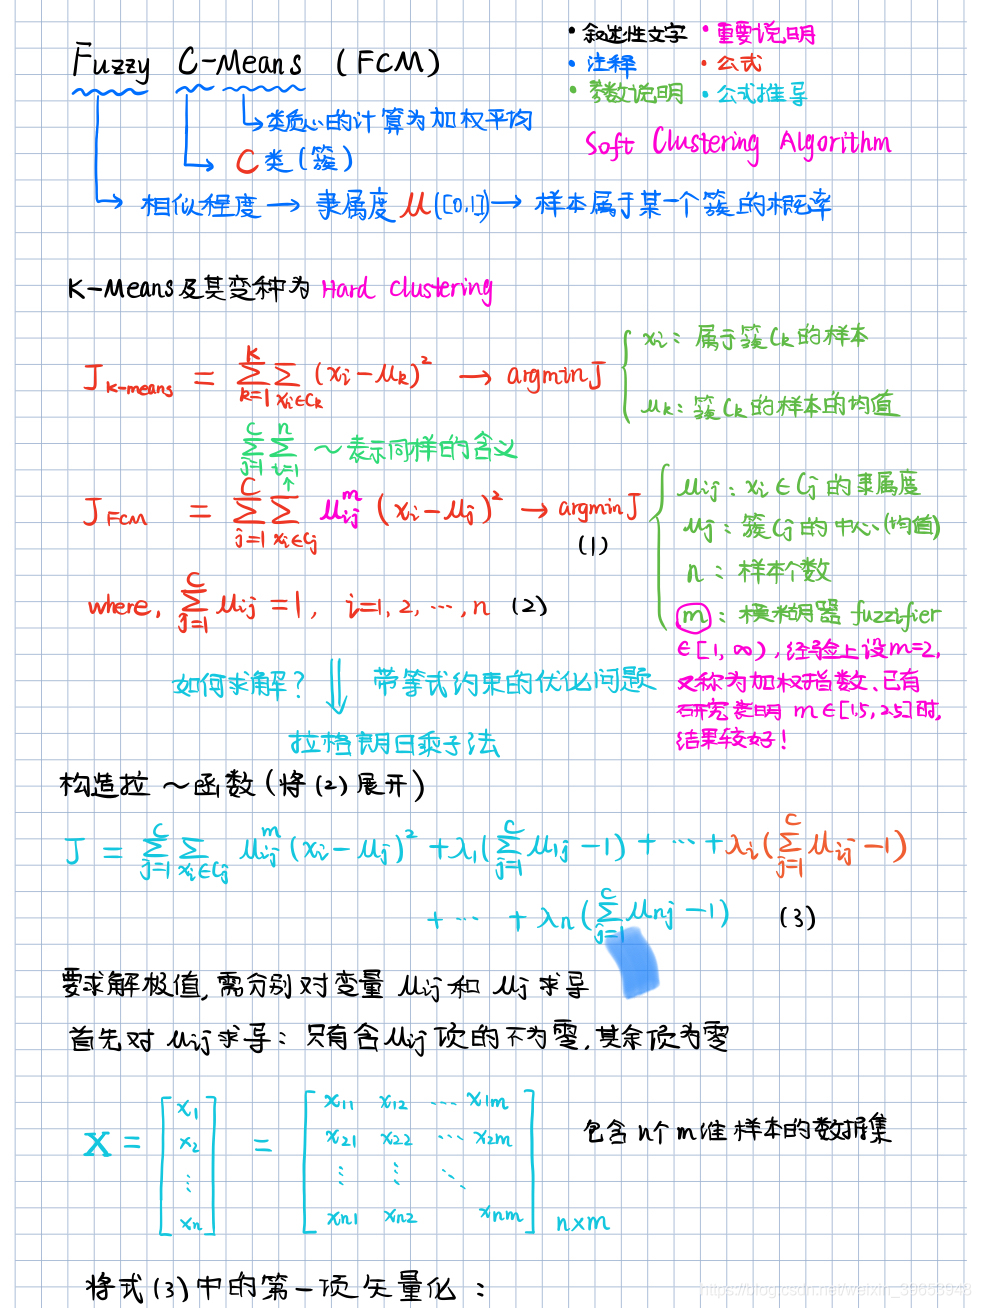 Fuzzy C-Means (FCM)
• 叙述性文字 • 重要说明
• 注释 • 公式
• 参数说明 • 公式推导
类质心的计算为加权平均
C类(簇)
Soft Clustering Algorithm
相似程度 → 隶属度 μ ([0,1]) → 样本属于某一个簇的概率
K-Means及其变种为 Hard clustering
J_{K-means} = \sum_{k=1}^{K} \sum_{x_i∈C_k} (x_i-μ_k)^2 → argmin J
x_i: 属于簇C_k的样本
μ_k: 簇C_k的样本的均值
\sum_{j=1}^{C} \sum_{i=1}^{n} ~表示同样的含义
J_{FCM} = \sum_{j=1}^{C} \sum_{x_i∈C_j} μ_{ij}^m (x_i-μ_j)^2 → argmin J
(1)
μ_{ij}: x_i∈C_j的隶属度
μ_j: 簇C_j的中心(均值)
n: 样本个数
m: 模糊器 fuzzifier
∈[1, ∞), 经验上设m=2,
又称为加权指数、已有
研究表明 m∈[1.5, 2.5]时,
结果较好!
where, \sum_{j=1}^{C} μ_{ij} = 1, i=1, 2, ..., n (2)
如何求解? ⇓ 带等式约束的优化问题
拉格朗日乘子法
构造拉~函数(将(2)展开)
J = \sum_{j=1}^{C} \sum_{x_i∈C_j} μ_{ij}^m (x_i-μ_j)^2 + λ_1(\sum_{j=1}^{C} μ_{1j} -1) + ... + λ_i(\sum_{j=1}^{C} μ_{ij} -1)
+ ... + λ_n(\sum_{j=1}^{C} μ_{nj} -1) (3)
要求解极值, 需分别对变量 μ_{ij} 和 μ_j 求导
首先对 μ_{ij} 求导: 只有含 μ_{ij} 项的不为零, 其余项为零
X = [x_1 x_2 ⋮ x_n] = [x_{11} x_{12} ... x_{1m} x_{21} x_{22} ... x_{2m} ⋮ ⋮ ⋱ x_{n1} x_{n2} x_{nm}] n×m
包含n个m维样本的数据集
将式(3)中的第一项矢量化:
https://blog.csdn.net/weixin_39653948